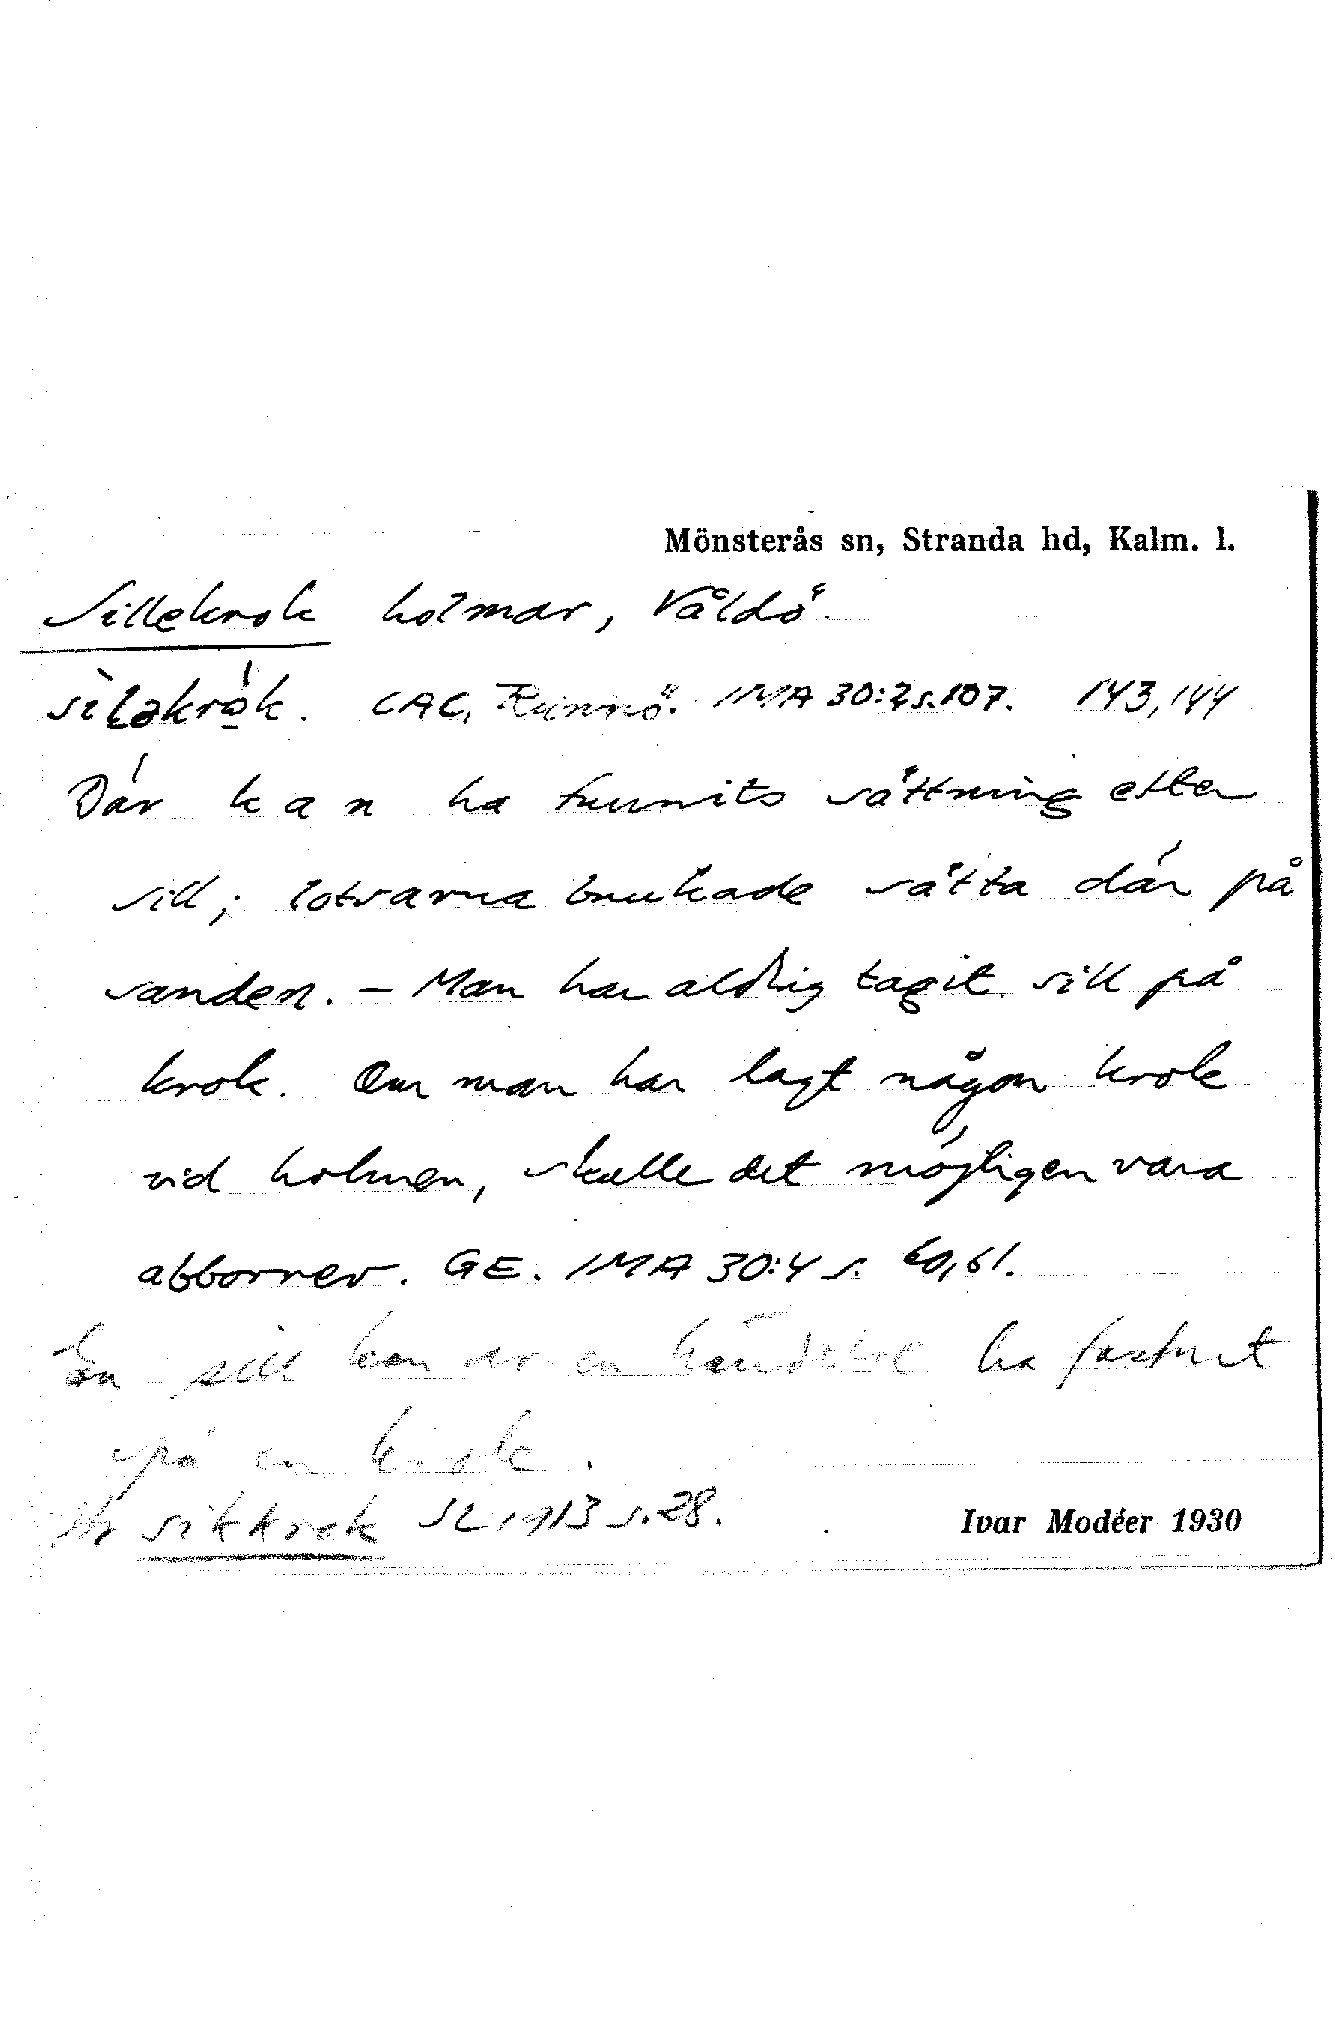 Mönsterås sn, Stranda hd, Kalm. l.
Sillekrok holmar, Våldö.
sìləkrók. CAC, Runnö. IMA 30:2 s. 107. 143,144
Där kan ha funnits sättning efter
sill; lotsarna brukade sätta där på
sanden. – Man har aldrig tagit sill på
krok. Om man har lagt någon krok
vid holmen, skulle det möjligen vara
abborrev. GE. IMA 30:4 s. 60,61.
En sill kan av en händelse ha fastnat
på en krok.
sikkrok SL 1913 s. 28.
Ivar Modéer 1930